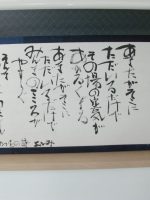 あなたがそこに
ただいるだけで
その場の空気が
あかるくなる
あなたがそこに
ただいるだけで
みんなのこころが
やすらぐ